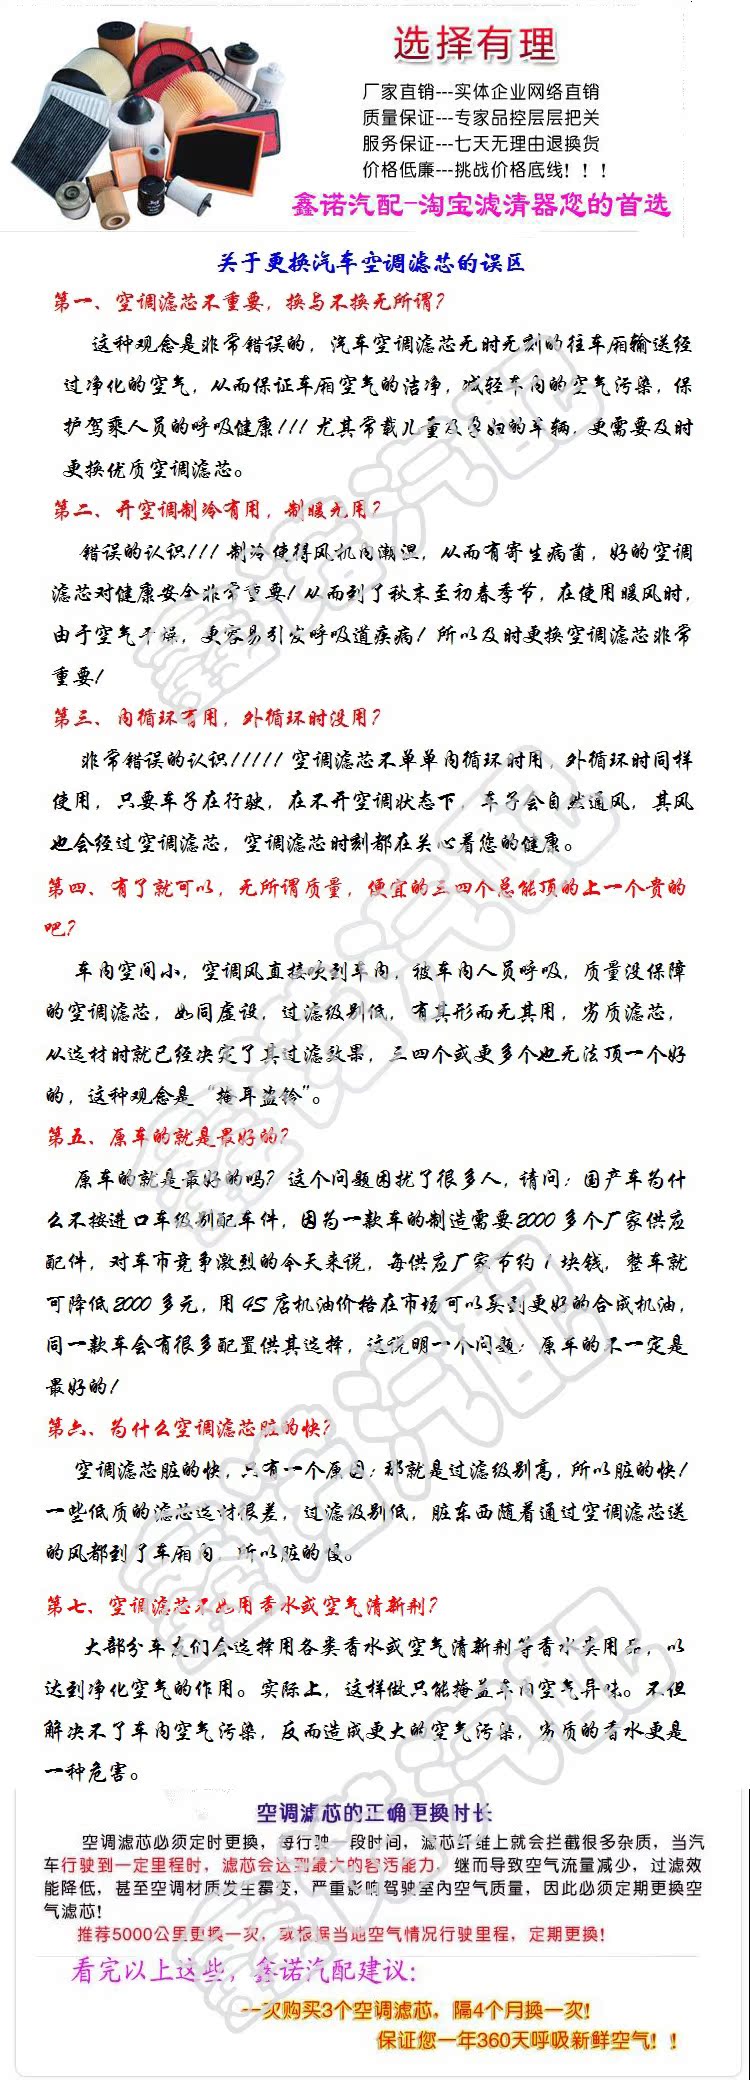 选择有理
厂家直销---实体企业网络直销
质量保证---专家品控层层把关
服务保证---七天无理由退换货
价格低廉---挑战价格底线！！！
鑫诺汽配-淘宝滤清器您的首选
关于更换汽车空调滤芯的误区
第一、空调滤芯不重要，换与不换无所谓？
这种观念是非常错误的，汽车空调滤芯无时无刻的往车厢输送经
过净化的空气，从而保证车厢空气的洁净，减轻车内的空气污染，保
护驾乘人员的呼吸健康！！！尤其常载儿童及孕妇的车辆，更需要及时
更换优质空调滤芯。
第二、开空调制冷有用，制暖无用？
错误的认识！！！制冷使得风机内潮湿，从而有寄生病菌，好的空调
滤芯对健康安全非常重要！从而到了秋末至初春季节，在使用暖风时，
由于空气干燥，更容易引发呼吸道疾病！所以及时更换空调滤芯非常
重要！
第三、内循环有用，外循环时没用？
非常错误的认识！！！！！空调滤芯不单单内循环时用，外循环时同样
使用，只要车子在行驶，在不开空调状态下，车子会自然通风，其风
也会经过空调滤芯，空调滤芯时刻都在关心着您的健康。
第四、有了就可以，无所谓质量，便宜的三四个总能顶的上一个贵的
吧？
车内空间小，空调风直接吹到车内，被车内人员呼吸，质量没保障
的空调滤芯，如同虚设，过滤级别低，有其形而无其用，劣质滤芯，
从选材时就已经决定了其过滤效果，三四个或更多个也无法顶一个好
的，这种观念是“掩耳盗铃”。
第五、原车的就是最好的？
原车的就是最好的吗？这个问题困扰了很多人，请问：国产车为什
么不按进口车级别配车件，因为一款车的制造需要2000多个厂家供应
配件，对车市竞争激烈的今天来说，每供应厂家节约1块钱，整车就
可降低2000多元，用4S店机油价格在市场可以买到更好的合成机油，
同一款车会有很多配置供其选择，这说明一个问题：原车的不一定是
最好的！
第六、为什么空调滤芯脏的快？
空调滤芯脏的快，只有一个原因：那就是过滤级别高，所以脏的快！
一些低质的滤芯选材很差，过滤级别低，脏东西随着通过空调滤芯送
的风都到了车厢内，所以脏的慢。
第七、空调滤芯不如用香水或空气清新剂？
大部分车友们会选择用各类香水或空气清新剂等香水类用品，以
达到净化空气的作用。实际上，这样做只能掩盖车内空气异味。不但
解决不了车内空气污染，反而造成更大的空气污染，劣质的香水更是
一种危害。
空调滤芯的正确更换时长
空调滤芯必须定时更换，每行驶一段时间，滤芯纤维上就会拦截很多杂质，当汽
车行驶到一定里程时，滤芯会达到最大的容污能力，继而导致空气流量减少，过滤效
能降低，甚至空调材质发生霉变，严重影响驾驶室内空气质量，因此必须定期更换空
气滤芯！
推荐5000公里更换一次，或根据当地空气情况行驶里程，定期更换！
看完以上这些，鑫诺汽配建议：
一次购买3个空调滤芯，隔4个月换一次！
保证您一年360天呼吸新鲜空气！！
鑫诺汽配
鑫诺汽配
鑫诺汽配
鑫诺汽配